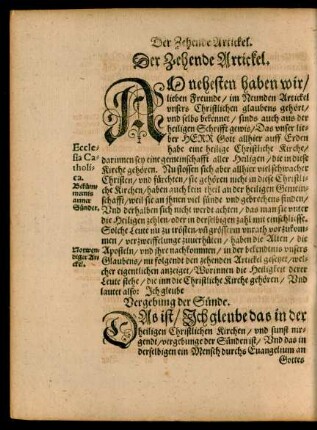 Der Zehende Artickel.
Der Zehende Artickel.
AM nehesten haben wir/
lieben Freunde/ im Neunden Artickel
vnsers Christlichen glaubens gehört/
vnd selbs bekennet/ sinds auch aus der
heiligen Schrifft gewis/ Das vnser lie-
ber HERR Gott allhier auff Erden
habe eine heilige Christliche Kirche/
darinnen sey eine gemeinschafft aller Heiligen/ die in diese
Kirche gehören. Nu lassen sich aber allhier viel schwacher
Christen/ vnd fürchten/ sie gehören nicht in diese Christli-
che Kirchen/ haben auch kein theil an der heiligen Gemein-
schafft/ weil sie an ihnen viel sünde vnd gebrechens finden/
Vnd derhalben sich nicht werd achten/ das man sie vnter
die Heiligen zehlen/ oder in derselbigen zahl mit einschliesse.
Solche Leute nu zu trösten/ vnd vnrath vorzukom-
men/ verzweiffelung zuuerhüten/ haben die Alten, die
Aposteln/ vnd ihre nachkommen/ in der bekendtnis vnsers
Glaubens/ nu folgends den zehenden Artickel gesetzet/ wel-
cher eigentlichen anzeiget/ Worinnen die Heiligkeit derer
Leute stehe/ die inn die Christliche Kirche gehören/ Vnd
lautet also: Ich gleube
Vergebung der Sünde.
DAs ist/ Ich gleube das in der
heiligen Christlichen Kirchen/ vnd sunst nir-
gendt/ vergebunge der Sünden ist/ Vnd das in
derselbigen ein Mensch durchs Euangelium an
Gottes
Eccle-
sia Ca-
tholi-
ca.
Sünder.